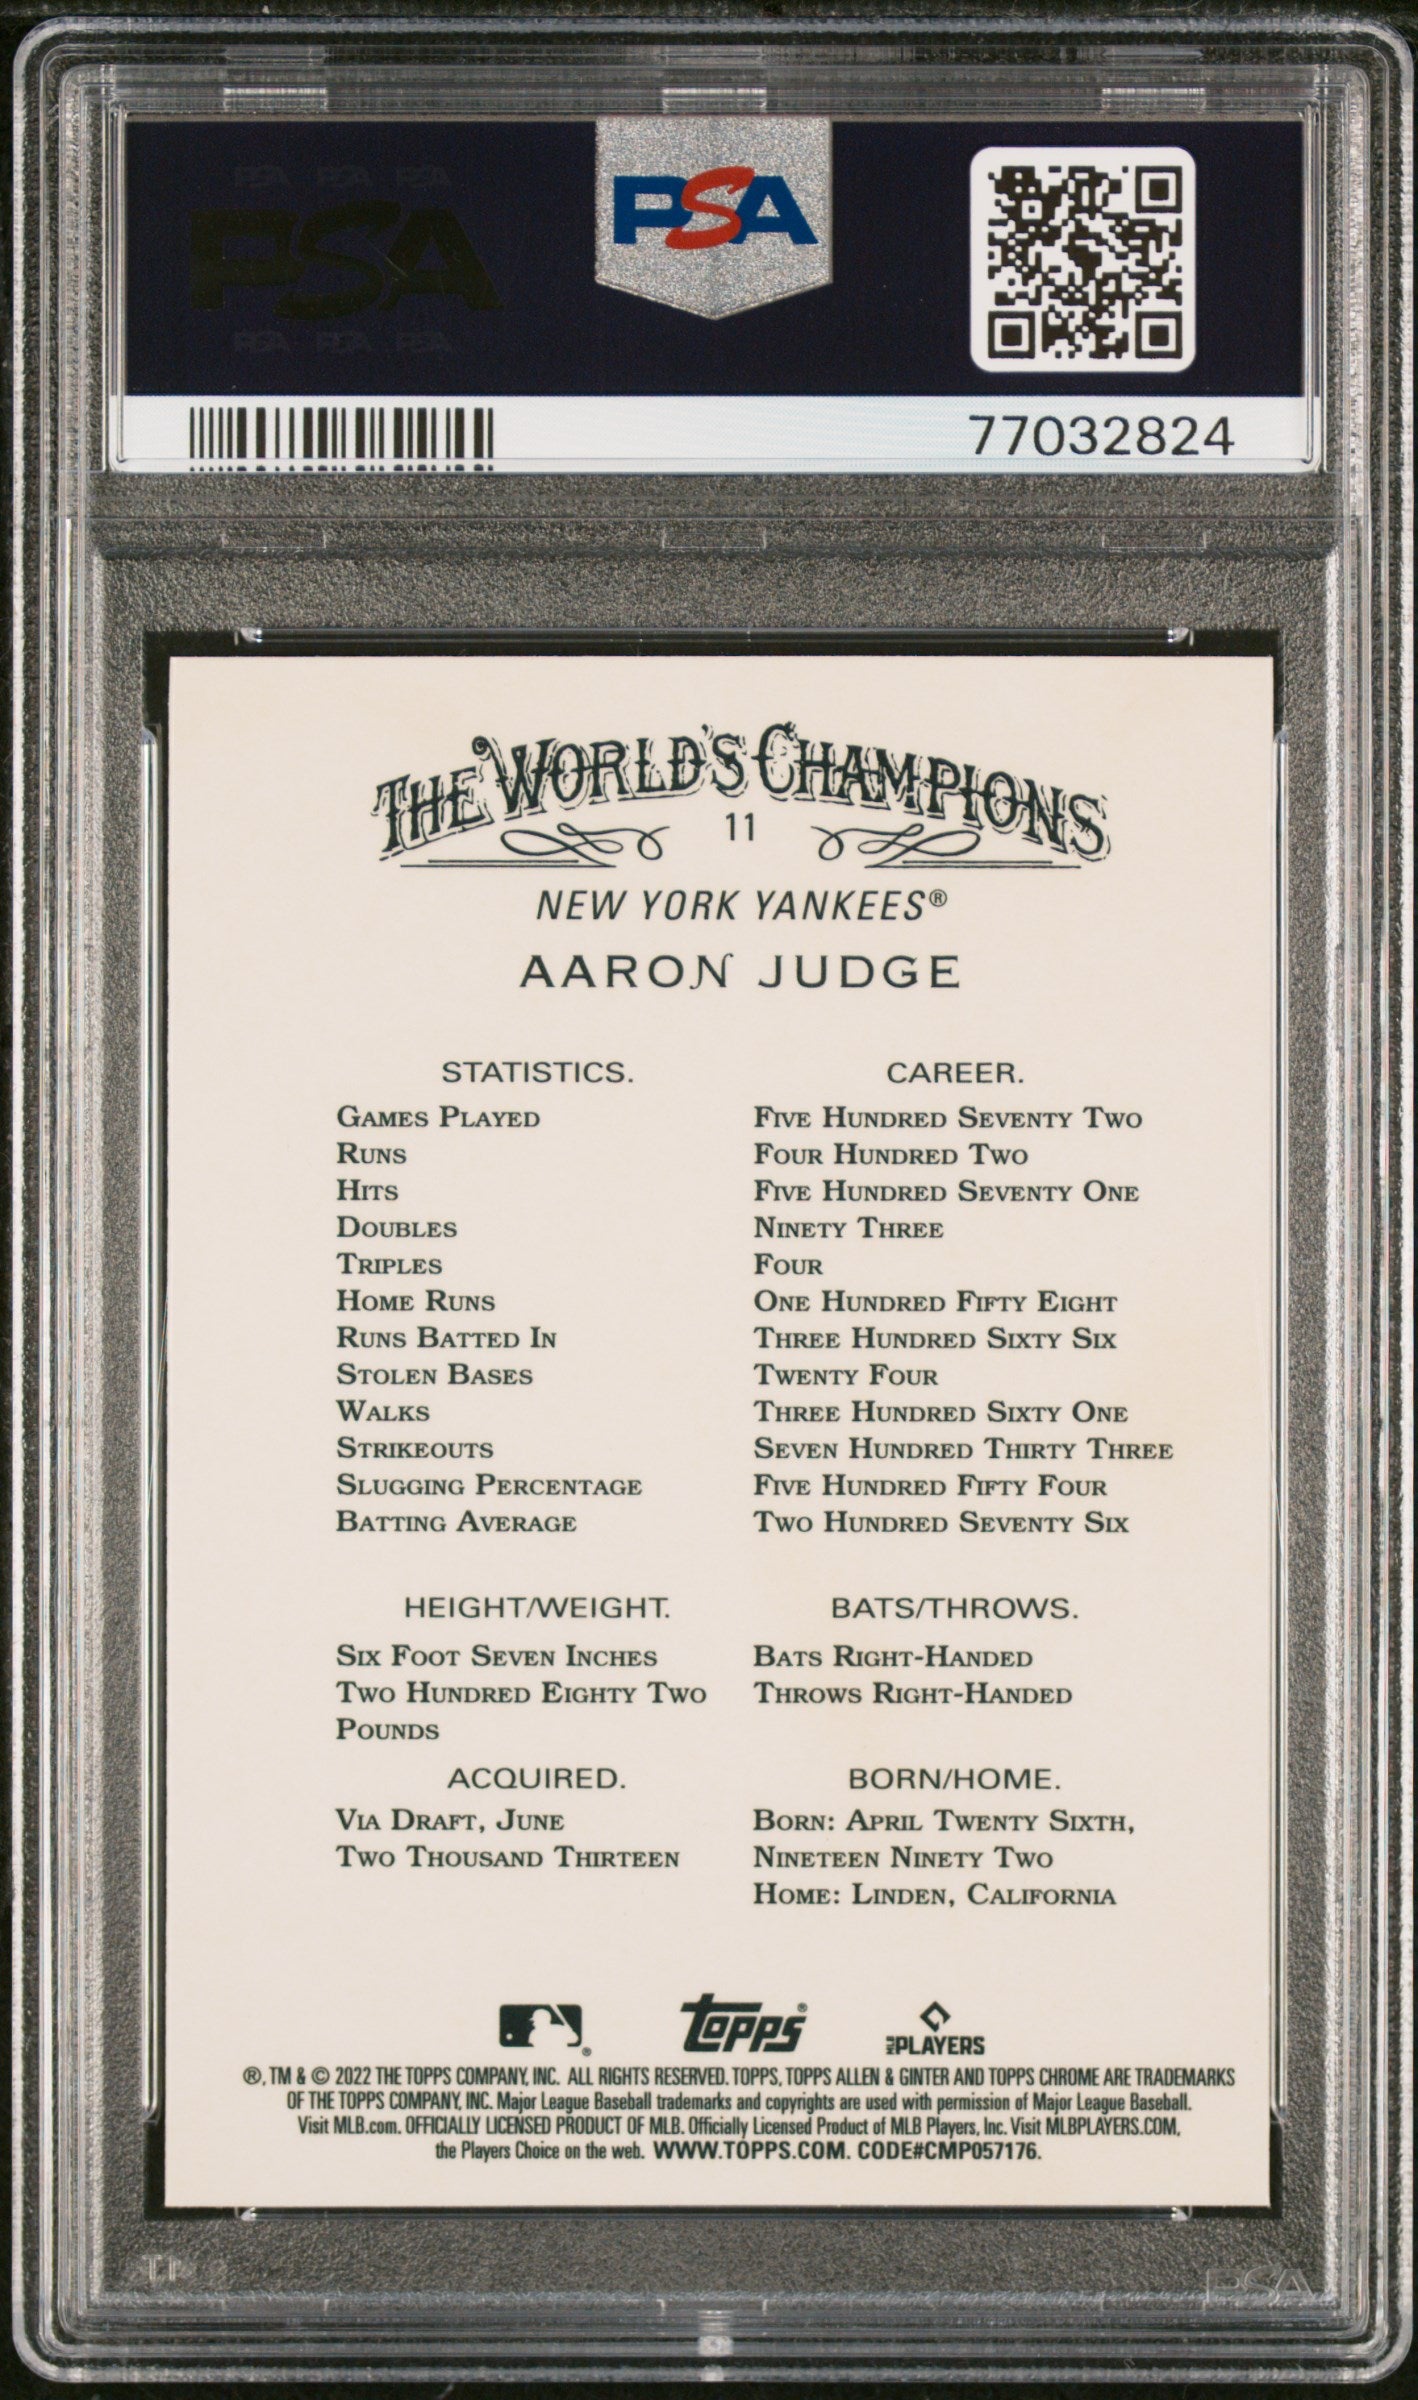 PSA PSA PSA
PSA
PSA PSA PSA
PSA
77032824
THE WORLD'S CHAMPIONS
11
NEW YORK YANKEES®
AARON JUDGE
STATISTICS. CAREER.
GAMES PLAYED FIVE HUNDRED SEVENTY TWO
RUNS FOUR HUNDRED TWO
HITS FIVE HUNDRED SEVENTY ONE
DOUBLES NINETY THREE
TRIPLES FOUR
HOME RUNS ONE HUNDRED FIFTY EIGHT
RUNS BATTED IN THREE HUNDRED SIXTY SIX
STOLEN BASES TWENTY FOUR
WALKS THREE HUNDRED SIXTY ONE
STRIKEOUTS SEVEN HUNDRED THIRTY THREE
SLUGGING PERCENTAGE FIVE HUNDRED FIFTY FOUR
BATTING AVERAGE TWO HUNDRED SEVENTY SIX
HEIGHT/WEIGHT. BATS/THROWS.
SIX FOOT SEVEN INCHES BATS RIGHT-HANDED
TWO HUNDRED EIGHTY TWO THROWS RIGHT-HANDED
POUNDS
ACQUIRED. BORN/HOME.
VIA DRAFT, JUNE BORN: APRIL TWENTY SIXTH,
TWO THOUSAND THIRTEEN NINETEEN NINETY TWO
HOME: LINDEN, CALIFORNIA
® Topps® MLB PLAYERS
®, TM & © 2022 THE TOPPS COMPANY, INC. ALL RIGHTS RESERVED. TOPPS, TOPPS ALLEN & GINTER AND TOPPS CHROME ARE TRADEMARKS
OF THE TOPPS COMPANY, INC. Major League Baseball trademarks and copyrights are used with permission of Major League Baseball.
Visit MLB.com. OFFICIALLY LICENSED PRODUCT OF MLB. Officially Licensed Product of MLB Players, Inc. Visit MLBPLAYERS.COM,
the Players Choice on the web. WWW.TOPPS.COM. CODE#CMP057176.
PSA